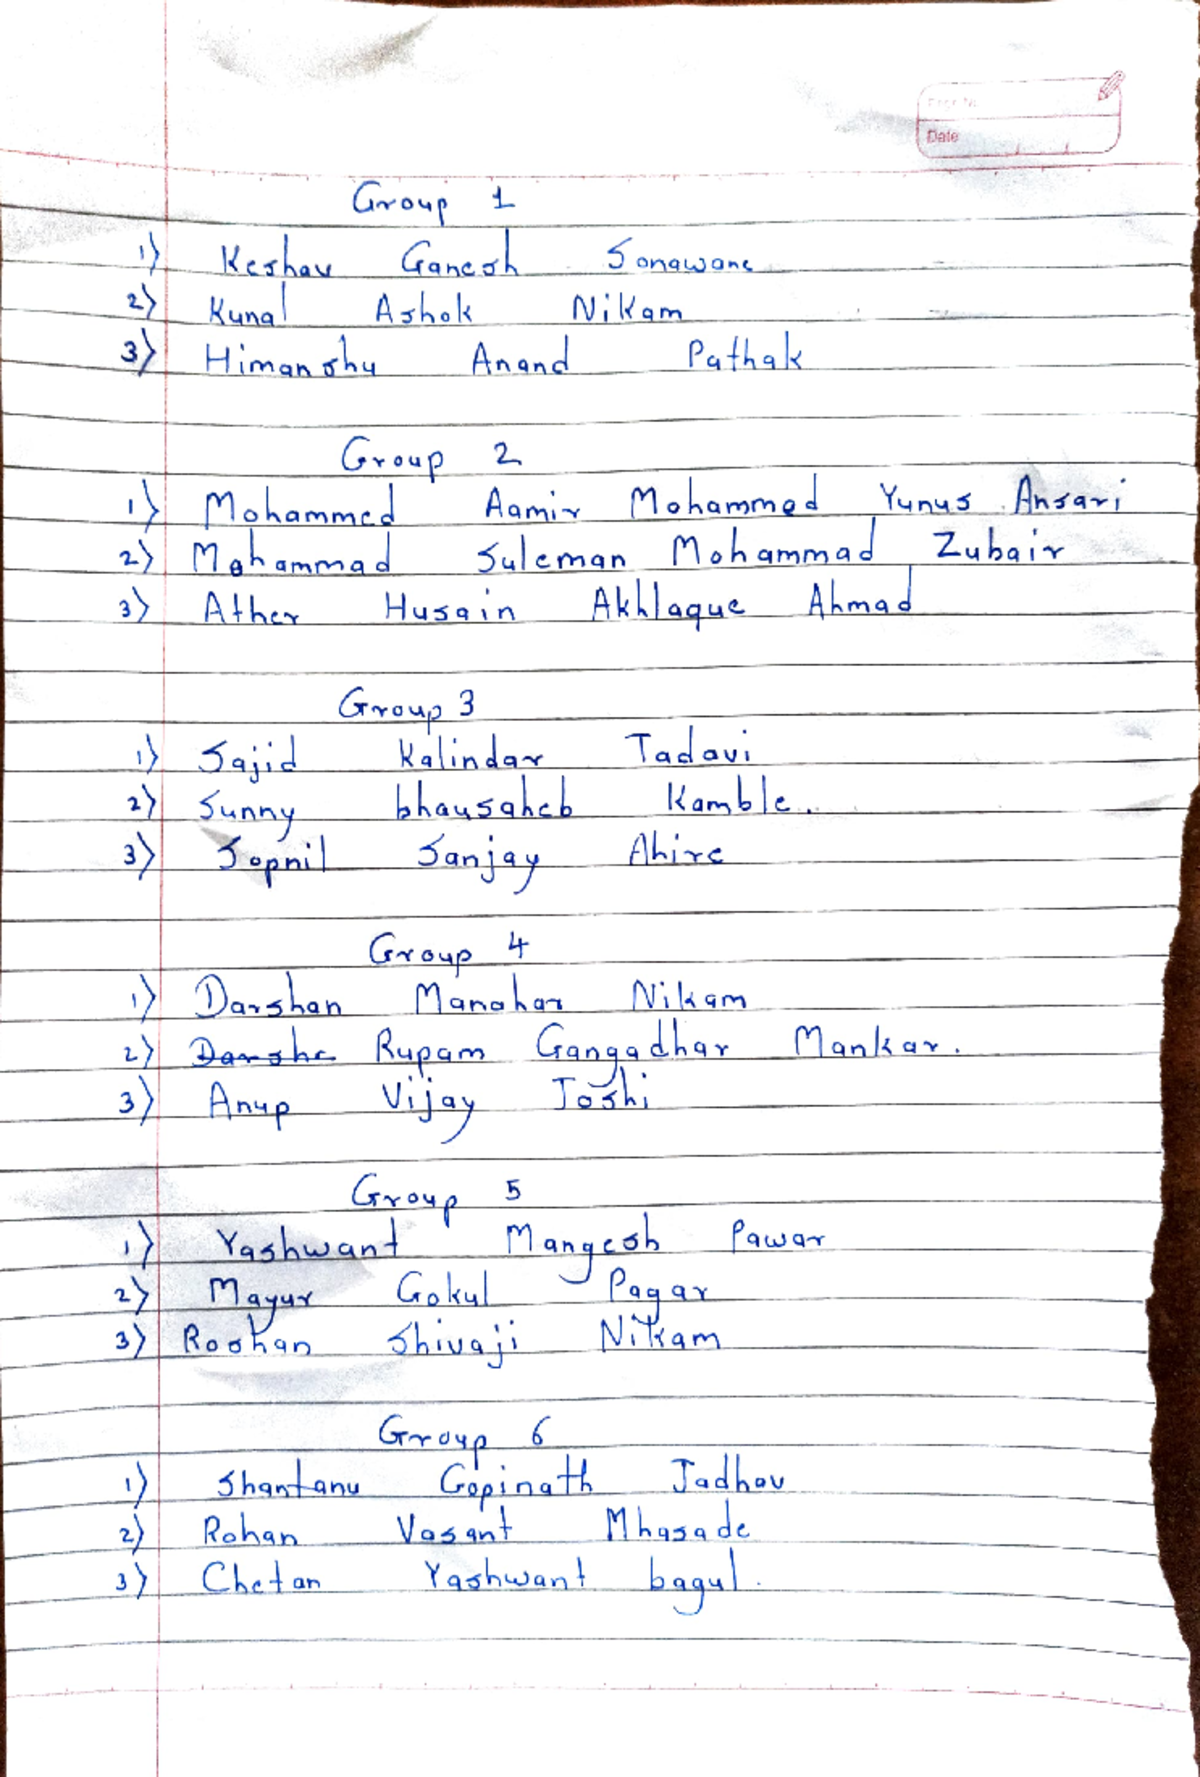 Page No.
Date
Group 1
1) Keshav Ganesh Sonawane
2) Kunal Ashok Nikam
3) Himanshu Anand Pathak
Group 2
1) Mohammed Aamir Mohammed Yunus Ansari
2) Mohammad Suleman Mohammad Zubair
3) Ather Husain Akhlaque Ahmad
Group 3
1) Sajid Kalindar Tadavi
2) Sunny bhausaheb Kamble.
3) Sopnil Sanjay Ahire
Group 4
1) Darshan Manohar Nikam
2) Darshe Rupam Gangadhar Mankar.
3) Anup Vijay Joshi
Group 5
1) Yashwant Mangesh Pawar
2) Mayur Gokul Pagar
3) Roshan Shivaji Nikam
Group 6
1) Shantanu Gopinath Jadhav
2) Rohan Vasant Mhasade
3) Chetan Yashwant bagul.